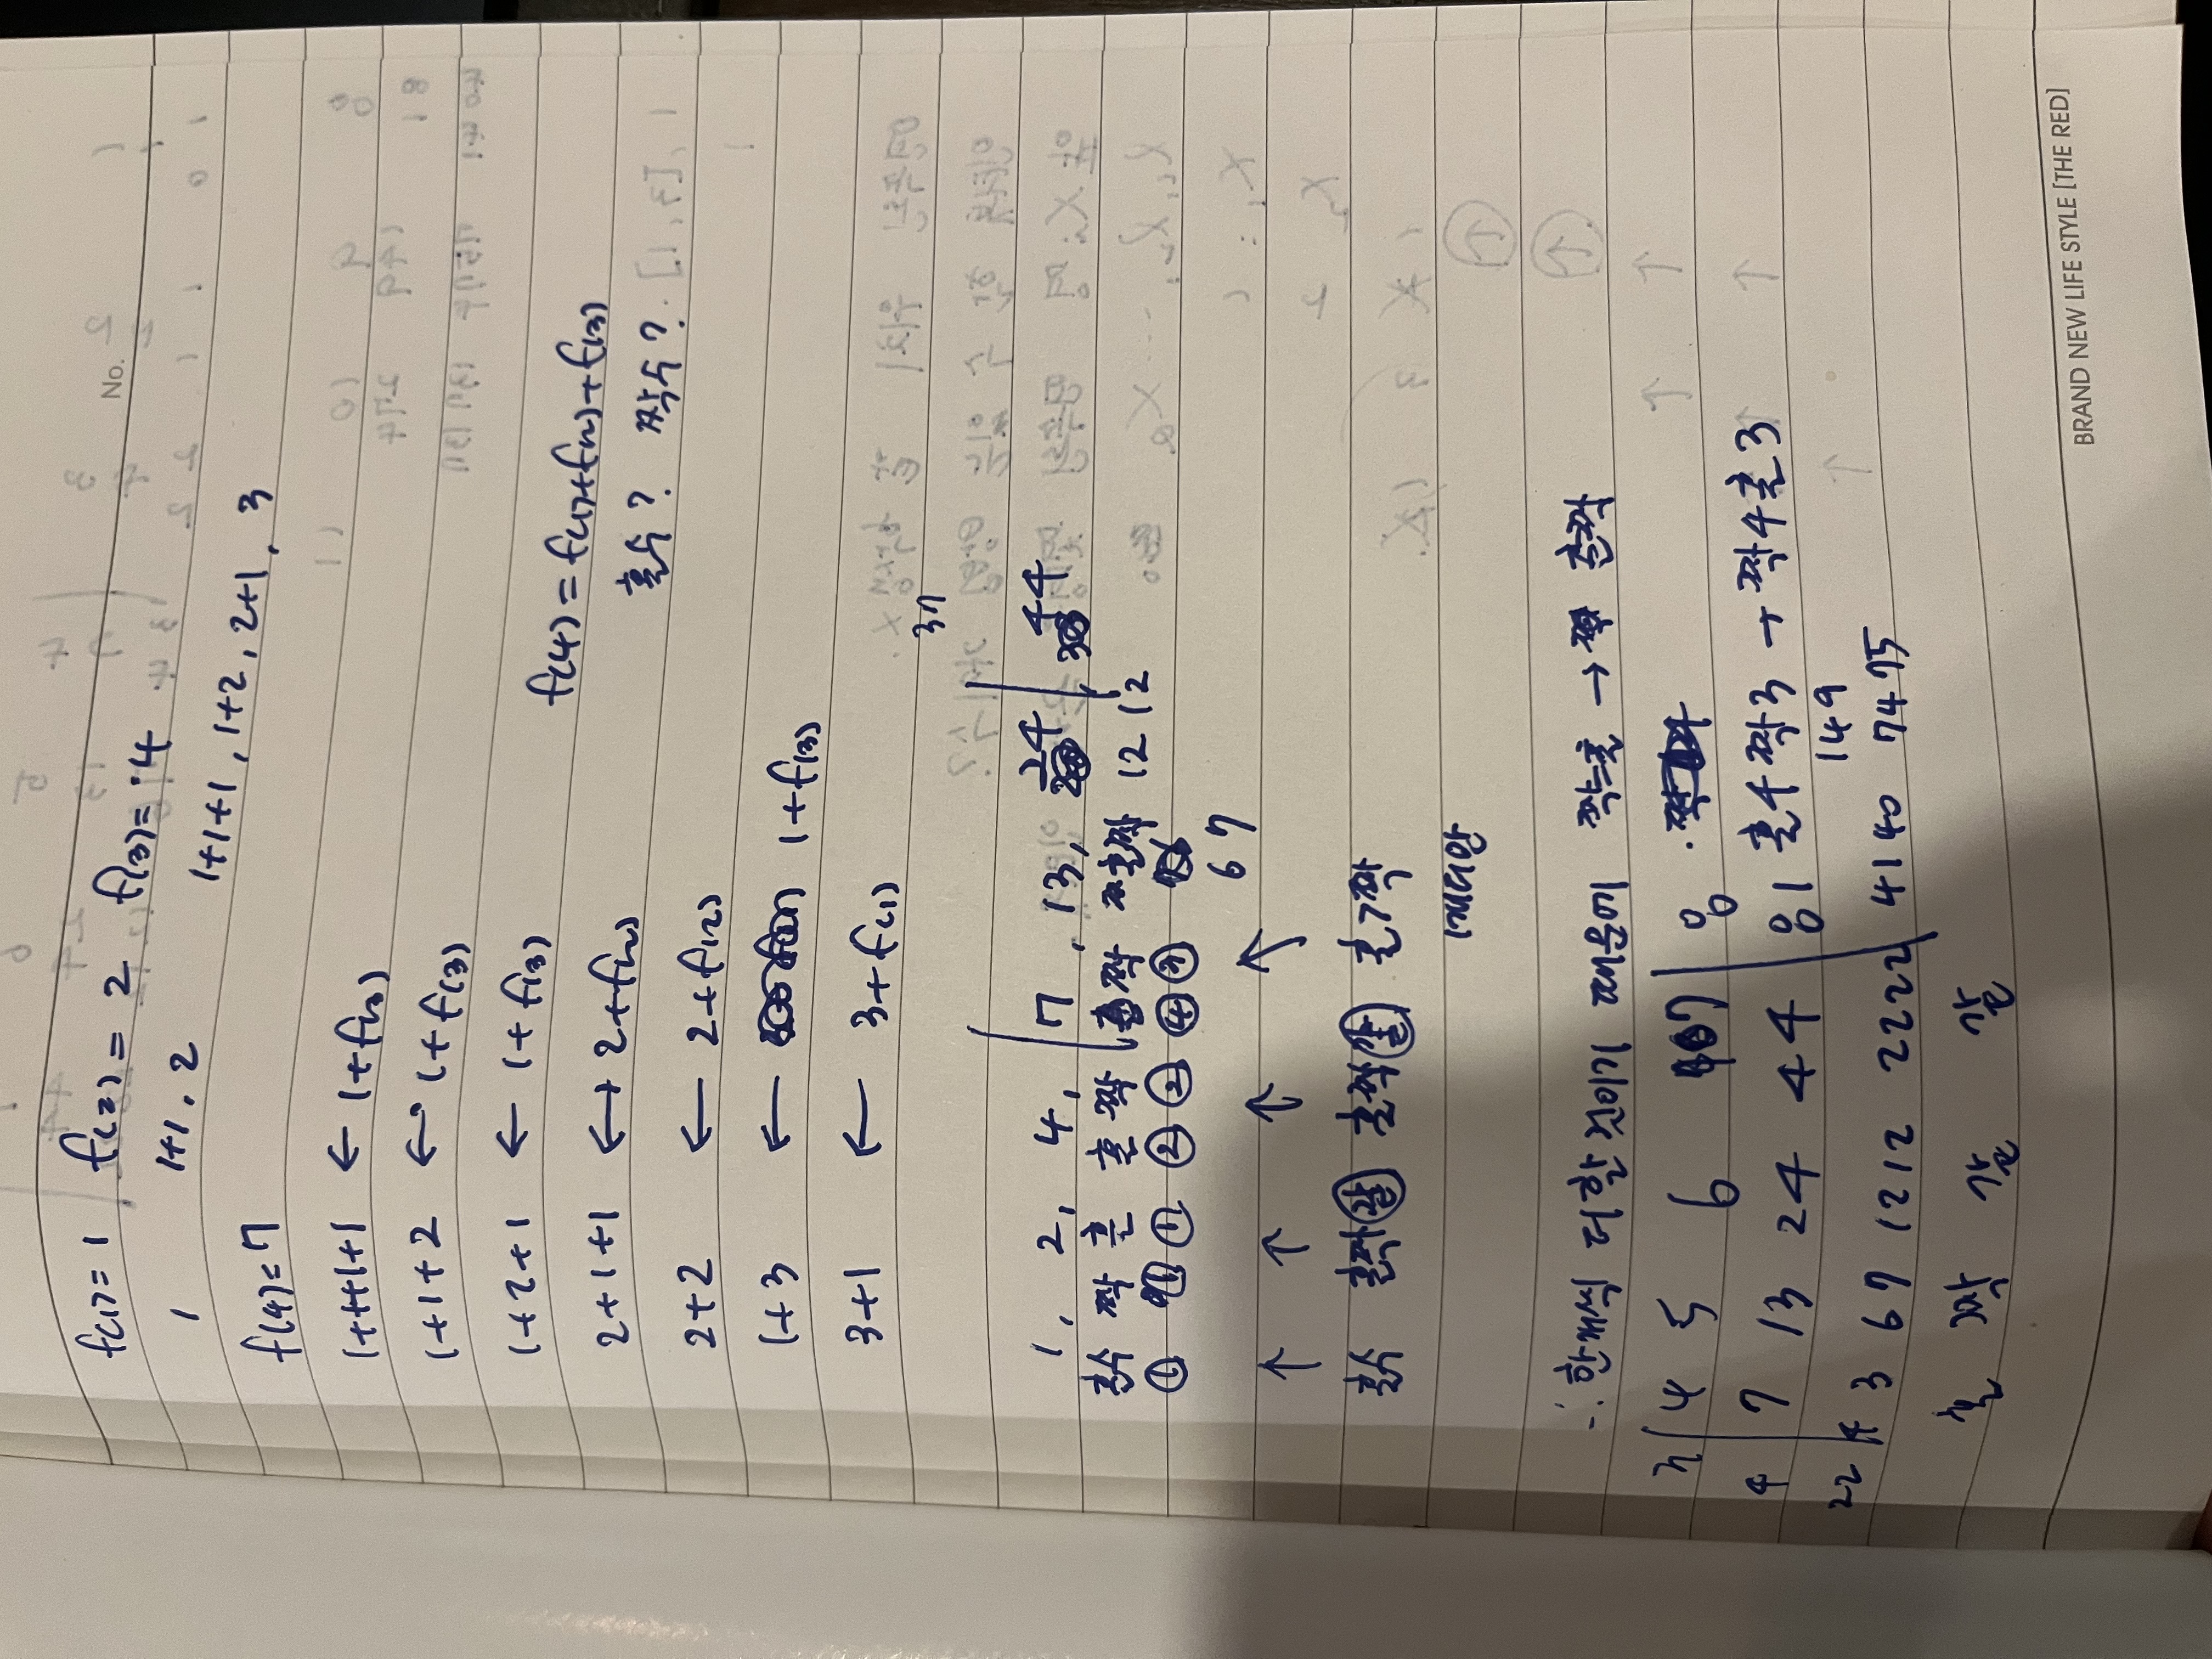 No.
f(1)=1 f(2)=2 f(3)=4
1 1+1, 2 1+1+1, 1+2, 2+1, 3
f(4)=7
1+1+1+1 ← 1+f(3)
1+1+2 ← 1+f(3)
1+2+1 ← 1+f(3)
f(4)=f(1)+f(2)+f(3)
2+1+1 ↔ 2+f(2)
홀수? 짝수?
2+2 ← 2+f(2)
1+3 ← 1+f(3)
3+1 ← 3+f(1)
37
1, 2, 4, 7, 13, 24, 44
홀수 짝 홀 홀 짝 홀 짝 홀짝 12 12
① ① ① ② ② ④ ③
6 7
↑ ↑ ↑ ↑
홀수 홀짝 같 홀짝 같 홀>짝
1개더많
∴ 한개씩 더할 것이기 때문에 짝=홀 → 홀짝
3 4 5 6 7 8
4 7 13 24 44 81 홀4 짝3 → 짝4 홀3
149
22 4 3 6 7 12 12 22 22 41 40 74 75
홀 짝 같 같
BRAND NEW LIFE STYLE [THE RED]